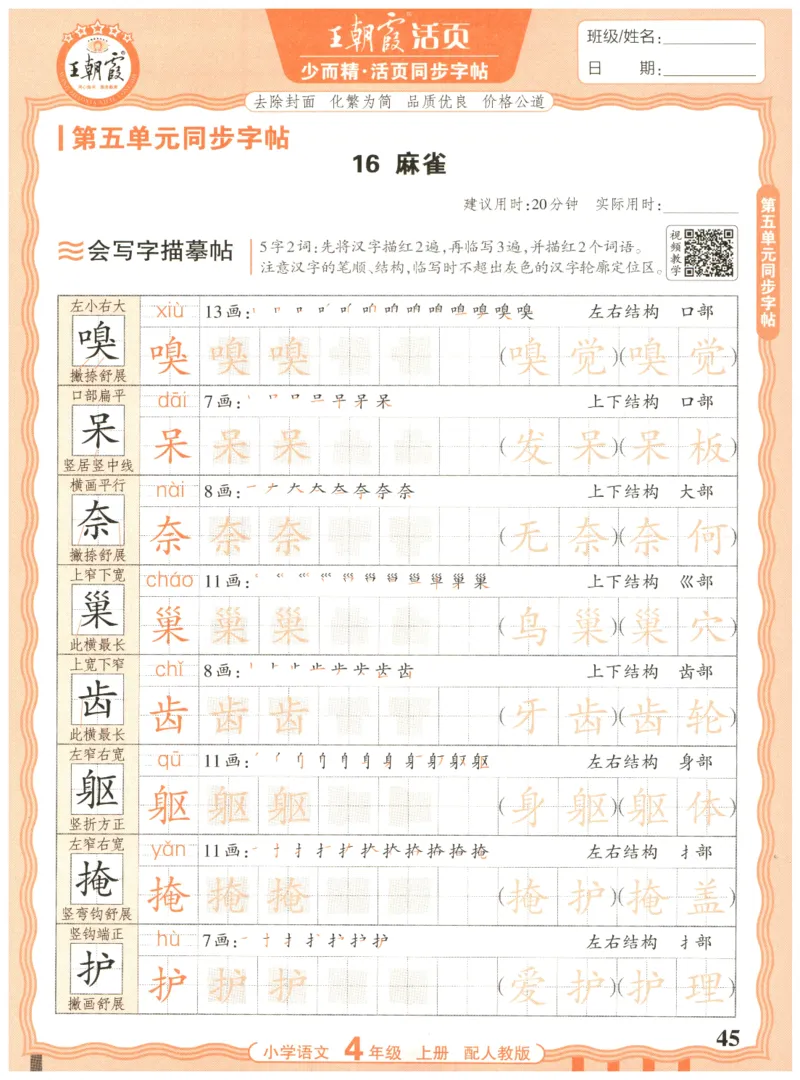 王朝霞
王朝霞活页
少而精·活页同步字帖
班级/姓名:
日 期:
去除封面 化繁为简 品质优良 价格公道
第五单元同步字帖
16 麻雀
建议用时:20分钟 实际用时:
会写字描摹帖
5字2词:先将汉字描红2遍,再临写3遍,并描红2个词语。
注意汉字的笔顺、结构,临写时不超出灰色的汉字轮廓定位区。
视频教学
第五单元同步字帖
左小右大
嗅
撇捺舒展
xiù 13画: 左右结构 口部
嗅 嗅 嗅 (嗅 觉)(嗅 觉)
口部扁平
呆
竖居竖中线
dāi 7画: 上下结构 口部
呆 呆 呆 (发 呆)(呆 板)
横画平行
奈
撇捺舒展
nài 8画: 上下结构 大部
奈 奈 奈 (无 奈)(奈 何)
上窄下宽
巢
此横最长
cháo 11画: 上下结构 巛部
巢 巢 巢 (鸟 巢)(巢 穴)
上宽下窄
齿
此横最长
chǐ 8画: 上下结构 齿部
齿 齿 齿 (牙 齿)(齿 轮)
左窄右宽
躯
竖折方正
qū 11画: 左右结构 身部
躯 躯 躯 (身 躯)(躯 体)
左窄右宽
掩
竖弯钩舒展
yǎn 11画: 左右结构 扌部
掩 掩 掩 (掩 护)(掩 盖)
竖钩端正
护
撇画舒展
hù 7画: 左右结构 扌部
护 护 护 (爱 护)(护 理)
45
小学语文 4年级 上册 配人教版